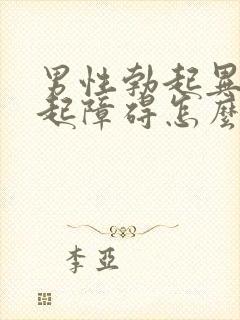 男性勃起異
起障碍怎麼
李亞